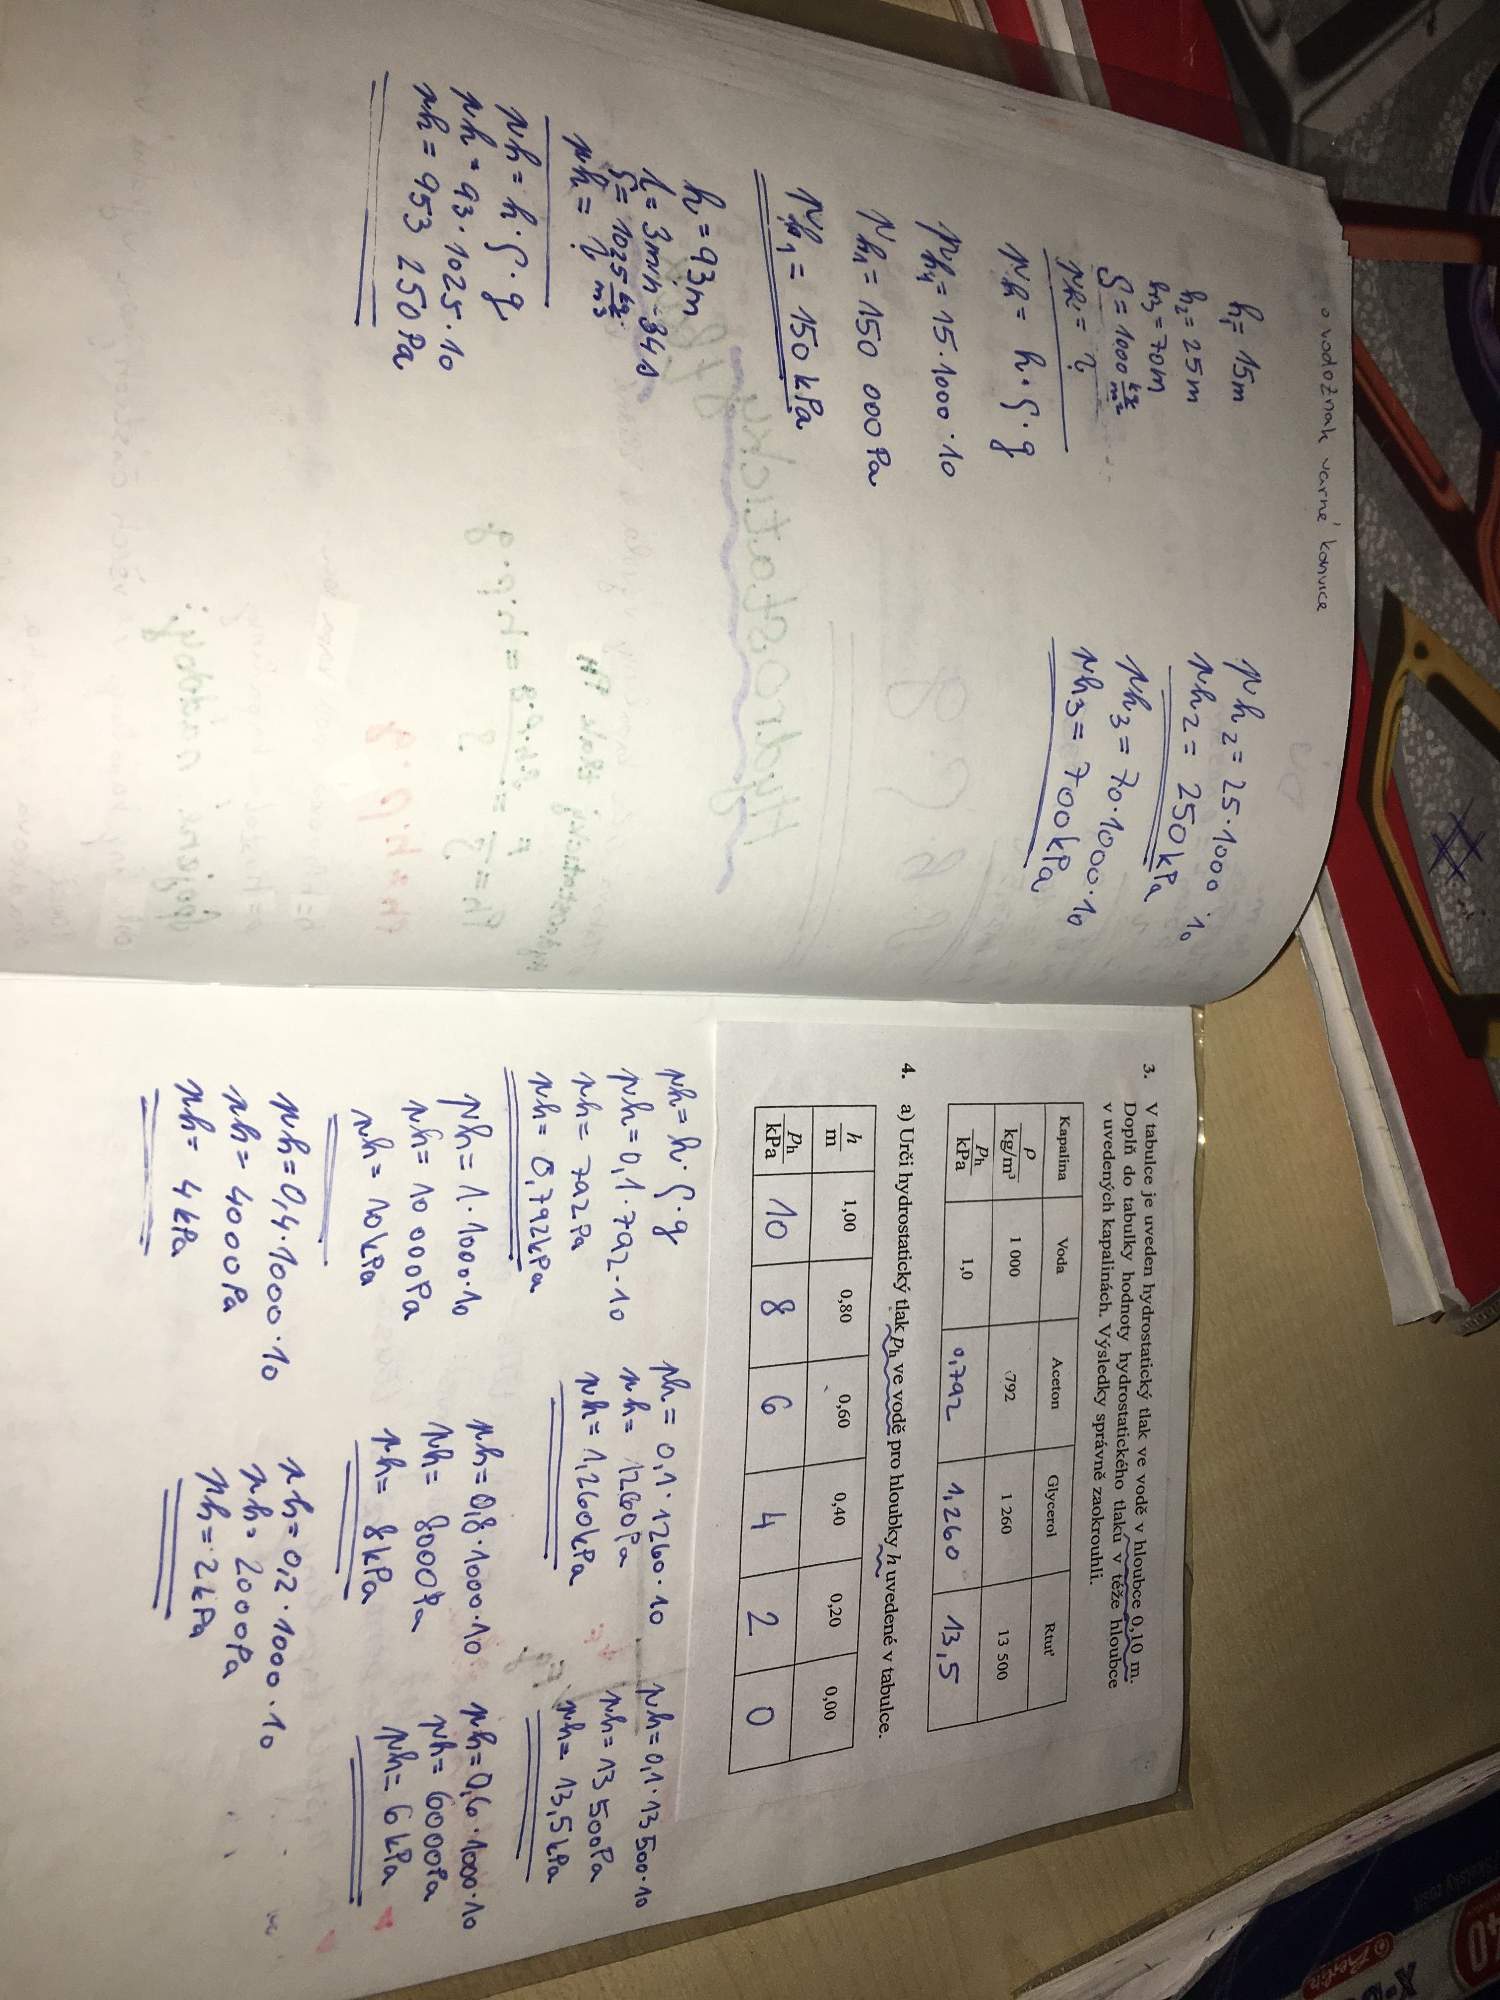 o vodoznak varné konvice
h₁= 15m
h₂= 25m
h₃= 70m
ρ= 1000 kg/m³
ph = ?
ph = h·ρ·g
ph₁= 15·1000·10
ph₁= 150 000 Pa
ph₁= 150 kPa
ph₂= 25·1000·10
ph₂= 250kPa
ph₃= 70·1000·10
ph₃= 700kPa
h = 93m
t= 3min 34s
ρ= 1025 kg/m³
ph = ?
ph= h·ρ·g
ph = 93·1025·10
ph= 953 250Pa
3. V tabulce je uveden hydrostatický tlak ve vodě v hloubce 0,10 m.
Doplň do tabulky hodnoty hydrostatického tlaku v téže hloubce
v uvedených kapalinách. Výsledky správně zaokrouhli.
Kapalina Voda Aceton Glycerol Rtuť
ρ kg/m³ 1 000 792 1 260 13 500
ph kPa 1,0 0,792 1,260 13,5
4. a) Urči hydrostatický tlak ph ve vodě pro hloubky h uvedené v tabulce.
h m 1,00 0,80 0,60 0,40 0,20 0,00
ph kPa 10 8 6 4 2 0
ph= h·ρ·g
ph= 0,1·792·10
ph= 792Pa
ph= 0,792kPa
ph= 0,1·1260·10
ph= 1260Pa
ph= 1,260kPa
ph=0,1·13500·10
ph= 13 500Pa
ph= 13,5kPa
ph= 1·1000·10
ph= 10 000Pa
ph= 10kPa
ph=0,8·1000·10
ph= 8000Pa
ph= 8kPa
ph=0,6·1000·10
ph= 6000Pa
ph= 6kPa
ph=0,4·1000·10
ph= 4000Pa
ph= 4kPa
ph=0,2·1000·10
ph= 2000Pa
ph= 2kPa